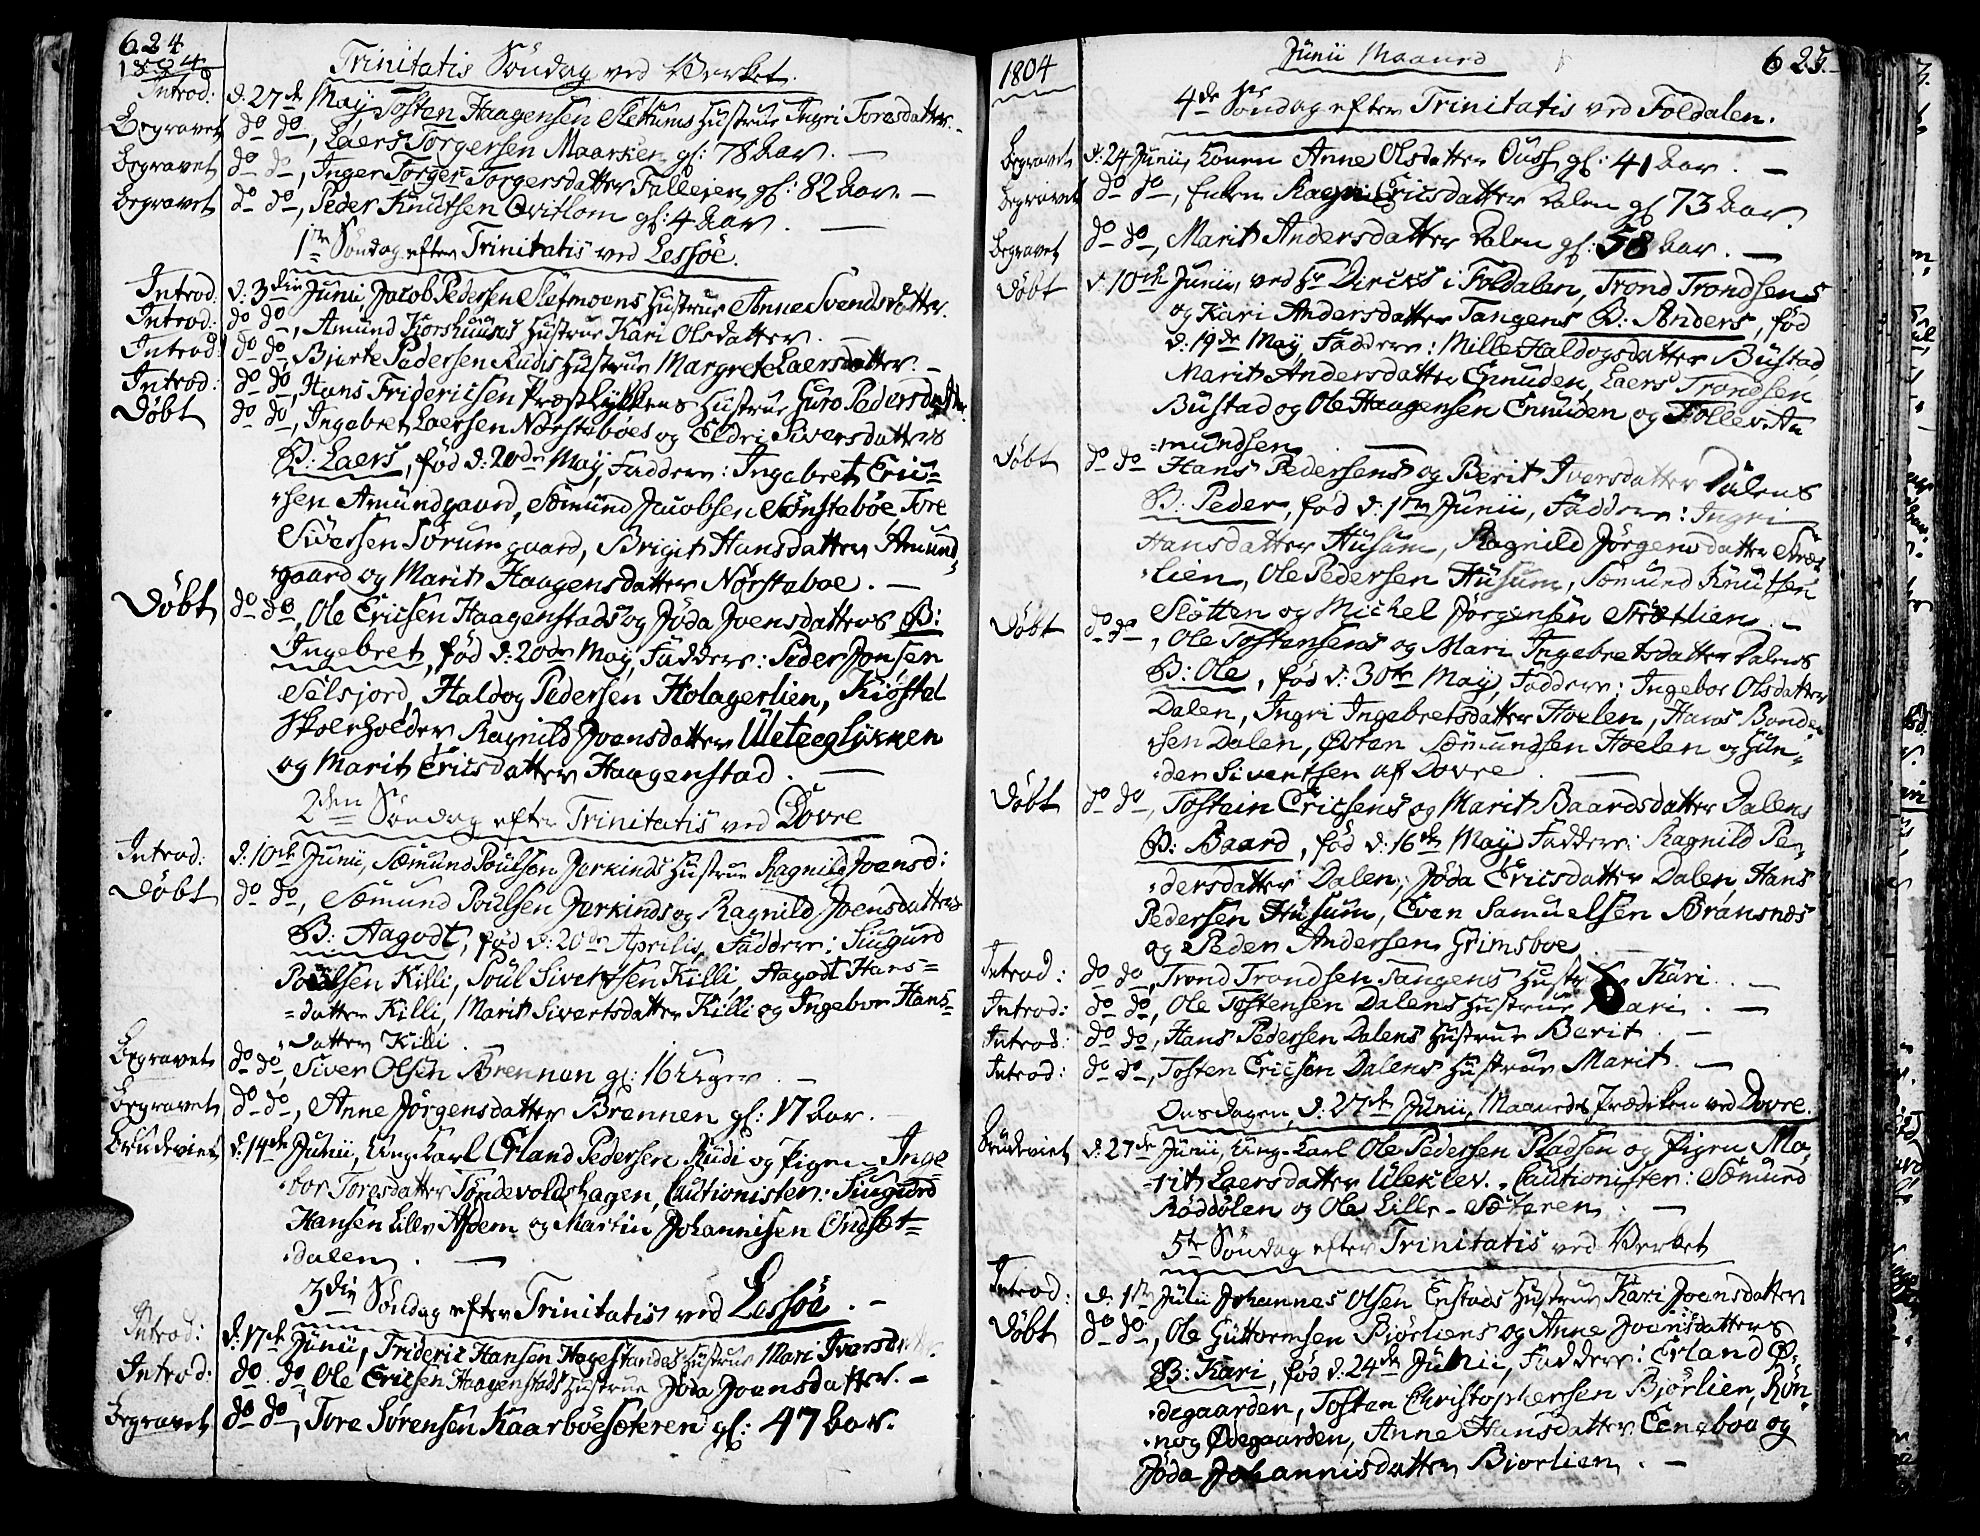 624
1804
Trinitatis Søndag ved Verket.
Introd: d: 27de May Tosten Haagensen Slettums Hustrue Ingri Toresdatter. -
Begravet do do, Laers Torgersen Maarsien gl: 78 Aar. -
Begravet do do, Inger Torger Torgersdatter Tolleien gl: 82 Aar. -
Begravet do do, Peder Knutsen Qvitlom gl: 4 Aar. -
1te Søndag efter Trinitatis ved Lessøe.
Introd: d: 3die Junii, Jacob Pedersen Sletmoens Hustrue Anne Svendsdatter.
Introd: do do, Amund Korshuuses Hustrue Kari Olsdatter. -
Introd: do do, Bjerte Pedersen Rudis Hustrue Margrete Laersdatter. -
Introd: do do, Hans Fridericsen Præstlykkens Hustrue Guro Pedersdatter
Døbt do do, Ingebret Laersen Norstaboes og Eldri Siversdatters
B: Laers, fød d: 20de May, Faddere: Ingebret Eric=
=sen Amundgaard, Sæmund Jacobsen Sønstebøe, Tore
Siversen Sørumgaard, Brigit Hansdatter Amund=
=gaard og Marit Haagensdatter Nørstaboe. -
Døbt do do, Ole Ericsen Haagenstads og Jøda Joensdatters B:
Ingebret, fød d: 20de May, Faddere: Peder Jonsen
Selsjord, Haldog Pedersen Holagerlien, Kiøstel
Skoeholder Ragnild Joensdatter Uleteeglykken
og Marit Ericsdatter Haagenstad. -
2den Søndag efter Trinitatis ved Dovre
Introd: d: 10de Junii, Sæmund Poulsen Jerkinds Hustrue Ragnild Joensd:
Døbt do do, Sæmund Poulsen Jerkinds og Ragnild Joensdatters
B: Aagodt, fød d: 20de Aprilis, Faddere: Siugurd
Poulsen Killi, Poul Sivertsen Killi, Aagodt Hans=
=datter Killi, Marit Sivertsdatter Killi og Ingebor Hans=
=datter Killi.
Begravet do do, Siver Olsen Brennen gl: 16 Uger. -
Begravet do do, Anne Jørgensdatter Brennen gl: 17 Aar. -
Brudeviet d: 14de Junii, Ung-Karl Erland Pedersen Rudi og Pigen Inge=
=bor Toresdatter Tøndevoldshagen, Cautionister: Siugurd
Hansen Lille Afdem og Martin Johannisen Indset=
=dalen. -
3die Søndag efter Trinitatis ved Lessøe. -
Introd: d: 17de Junii, Frideric Hansen Hagestandes Hustrue Mari Iversdatter.
Introd: do do Ole Ericsen Haagenstads Hustrue Jøda Joensdatter. -
Begravet do do, Tore Sørensen Kaarbøesæteren gl: 47 Aar.
1804 Junii Maaned 625.
4de Søndag efter Trinitatis ved Foldalen.
Begravet d: 24 Junii, Konen Anne Olsdatter Husf gl: 41 Aar. -
Begravet do do, Enken Ragni Ericsdatter Dalen gl 73 Aar
Begravet do do, Marit Andersdatter Dalen gl: 58 Aar. -
Døbt d: 10de Junii, ved Hr Dircks i Foldalen, Trond Trondsens
og Kari Andersdatter Tangens B: Anders, fød
d: 19de May, Faddere: Mille Haldogsdatter Bustad
Marit Andersdatter Ennuden, Laers Trondsen
Bustad og Ole Haagensen Ennuden og Tollev A=
=mundsen. -
Døbt do do Hans Pedersens og Berit Iversdatter Dalens
B: Peder, fød d: 1te Junii, Faddere: Ingri
Hansdatter Husum, Ragnild Jørgensdatter Stræt=
=lien, Ole Pedersen Husum, Sæmund Knutsen
Slotten og Michel Jørgensen Strætlien. -
Døbt do do, Ole Tostensens og Mari Ingebretsdatter Dalens
B: Ole, fød d: 30te May, Faddere: Ingebor Olsdatter
Dalen, Ingri Ingebretsdatter Hoelen, Hans Bonde=
=sen Dalen, Østen Sæmundsen Hoelen og Gun=
=der Sivertsen af Dovre. -
Døbt do do, Tostein Ericsens og Marit Baardsdatter Dalens
B: Baard, fød d: 16de May Faddere: Ragnild Pe=
=dersdatter Dalen, Jøda Ericsdatter Dalen, Hans
Pedersen Husum, Even Samuelsen Brænsnæs
og Peder Andersen Grimsboe -
Introd: do do, Trond Trondsen Tangens Hustr Kari. -
Introd: do do, Ole Tostensen Dalens Hustrue Mari. -
Introd: do do, Hans Pedersen Dalens Hustrue Berit. -
Introd: do do, Tosten Ericsen Dalens Hustrue Marit. -
Onsdagen, d: 27de Junii, Maaneds Prædiken ved Dovre.
Brudeviet d: 27de Junii, Ung-Karl Ole Pedersen Pladsen og Pigen Ma=
=rit Laersdatter Uleklev. Cautionister: Sæmund
Røddølen og Ole Lille-Sæteren. -
5te Søndag efter Trinitatis ved Verket
Introd: d. 1te Julii Johannes Olsen Enstads Hustrue Kari Joensdatter
Døbt do do, Ole Guttormsen Bjørliens og Anne Joensdatters
B: Kari, fød d: 24de Junii, Faddere: Erland Ø=
=degaarden, Tosten Christophersen Bjørlien, Røn=
=nog Ødegaarden, Anne Hansdatter Eeneboe og
Jøda Johannisdatter Biørlien. -